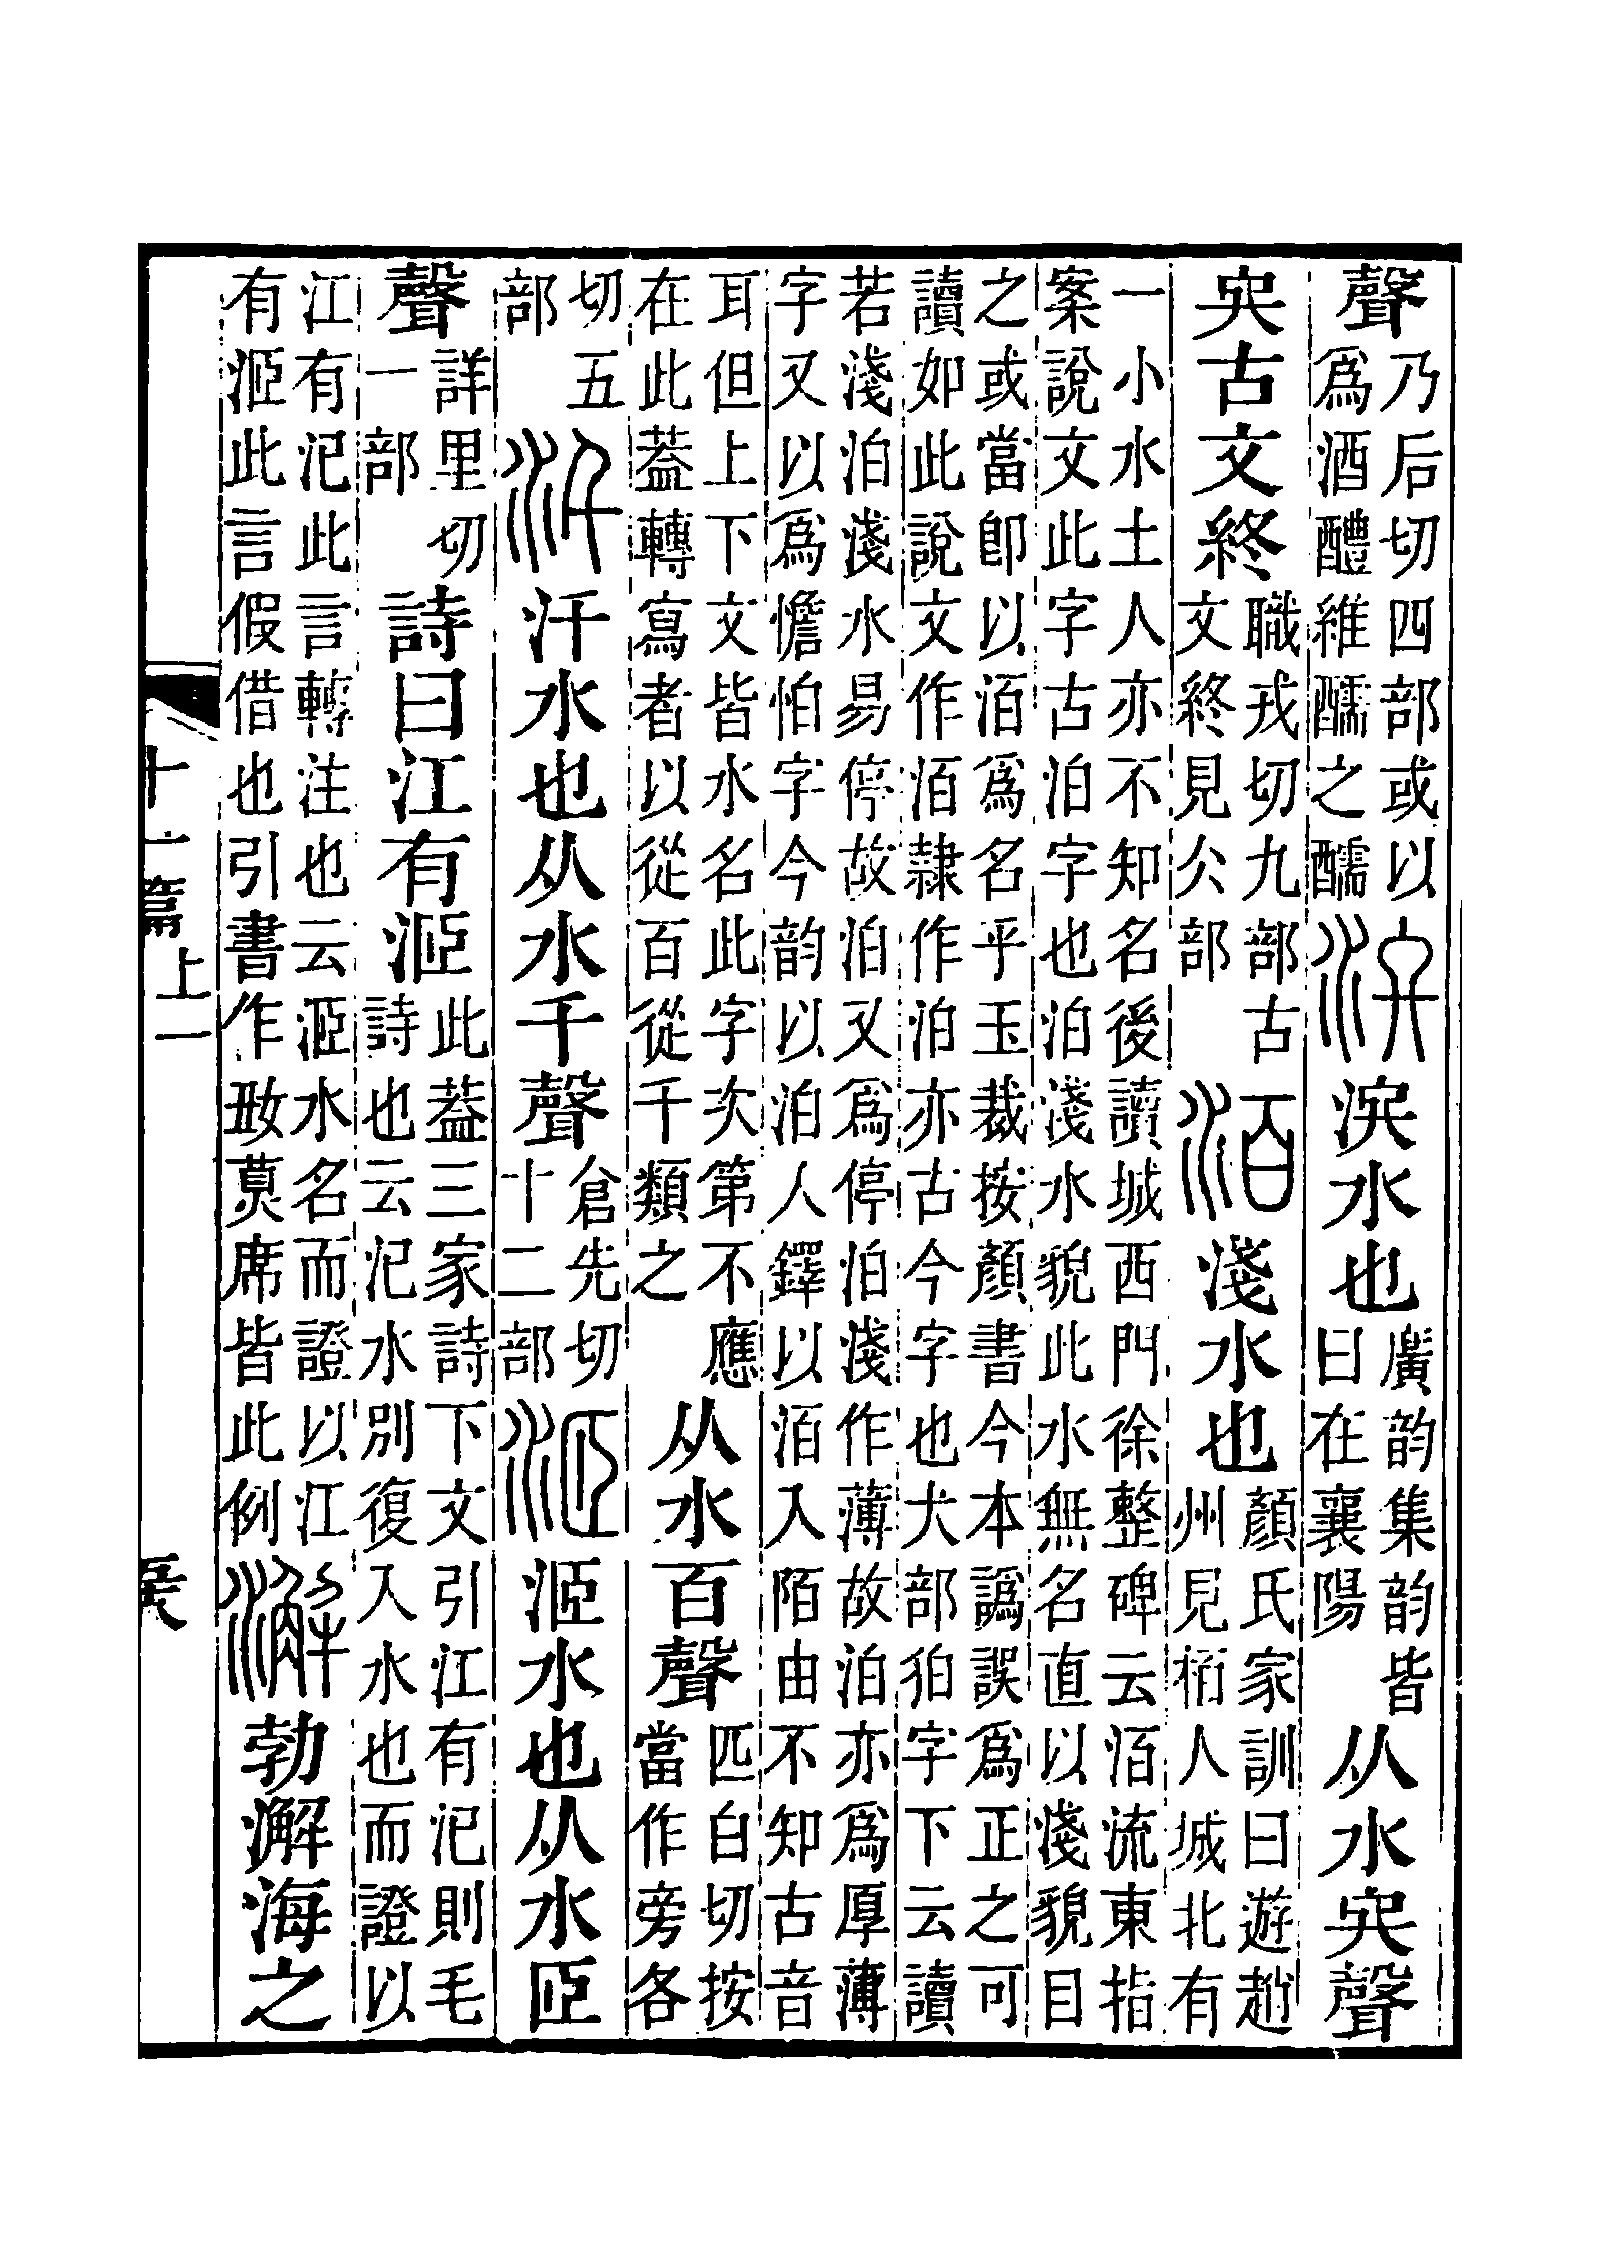 聲乃后切四部或以爲酒醴維醹之醹水也廣韵集韵皆曰在襄陽从水聲
古文終職戎切九部古文終見仌部洦淺水也顏氏家訓曰遊趙州見柏人城北有
一小水土人亦不知名後讀城西門徐整碑云洦流東指案說文此字古泊字也泊淺水貌此水無名直以淺貌目
之或當即以洦爲名乎玉裁按顏書今本譌誤爲正之可讀如此說文作洦隸作泊亦古今字也犬部狛字下云讀
若淺泊淺水易停故泊又爲停泊淺作薄故泊亦爲厚薄字又以爲憺怕字今韵以泊入鐸以洦入陌由不知古音
耳但上下文皆水名此字次第不應在此蓋轉寫者以從百從千類之从水百聲匹白切按當作旁各
切五部汘汘水也从水千聲倉先切十二部洍洍水也从水𦣞
聲詳里切一部詩曰江有洍此蓋三家詩下文引江有汜則毛詩也云汜水別復入水也而證以
江有汜此言轉注也云洍水名而證以江有洍此言假借也引書作𡚽莫席皆此例澥勃澥海之
十一篇上一